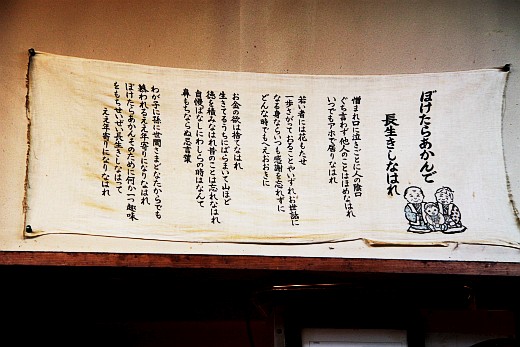 ぼけたらあかんで
長生きしなはれ
憎まれ口に泣きごとに人の陰口
ぐち言わず他人のことはほめなはれ
いつでもアホで居りなはれ
若い者には花もたせ
一歩さがっておることやいずれお世話に
なる身ならいつも感謝を忘れずに
どんな時でもへえおおきに
お金の欲は捨てなはれ
生きてるうちにばらまいて山ほど
徳を積みなはれ昔のことは忘れなはれ
自慢ばなしにわしらの時はなんて
鼻もちならぬ忌言葉
わが子に孫に世間さまどなたからでも
慕われるええ年寄りになりなはれ
ぼけたらあかんそのために何か一つ趣味
をもちせいぜい長生きしなはって
ええ年寄りになりなはれ